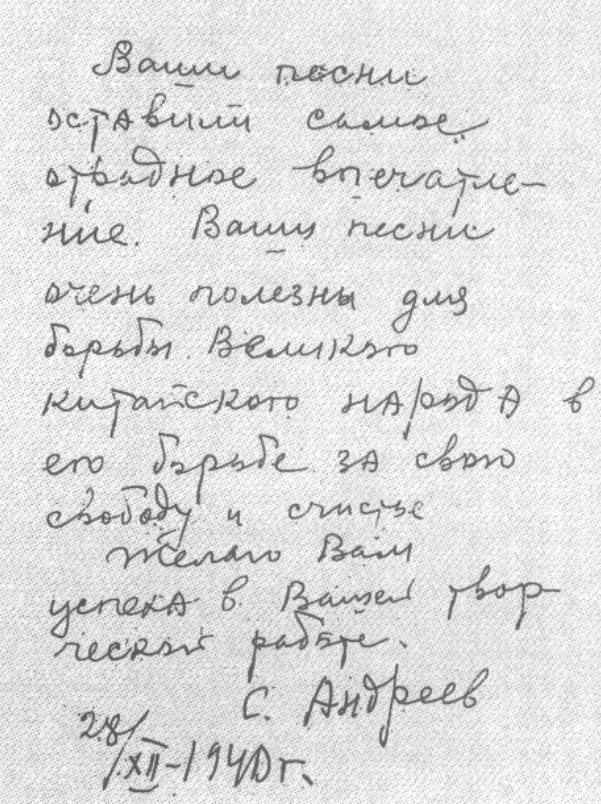 Ваши песни
оставили самое
отрадное впечатле-
ние. Ваши песни
очень полезны для
борьбы Великого
китайского народа в
его борьбе за свою
свободу и счастье
Желаю Вам
успеха в Вашей твор-
ческой работе.
С. Андреев
28/
/XII-1940 г.